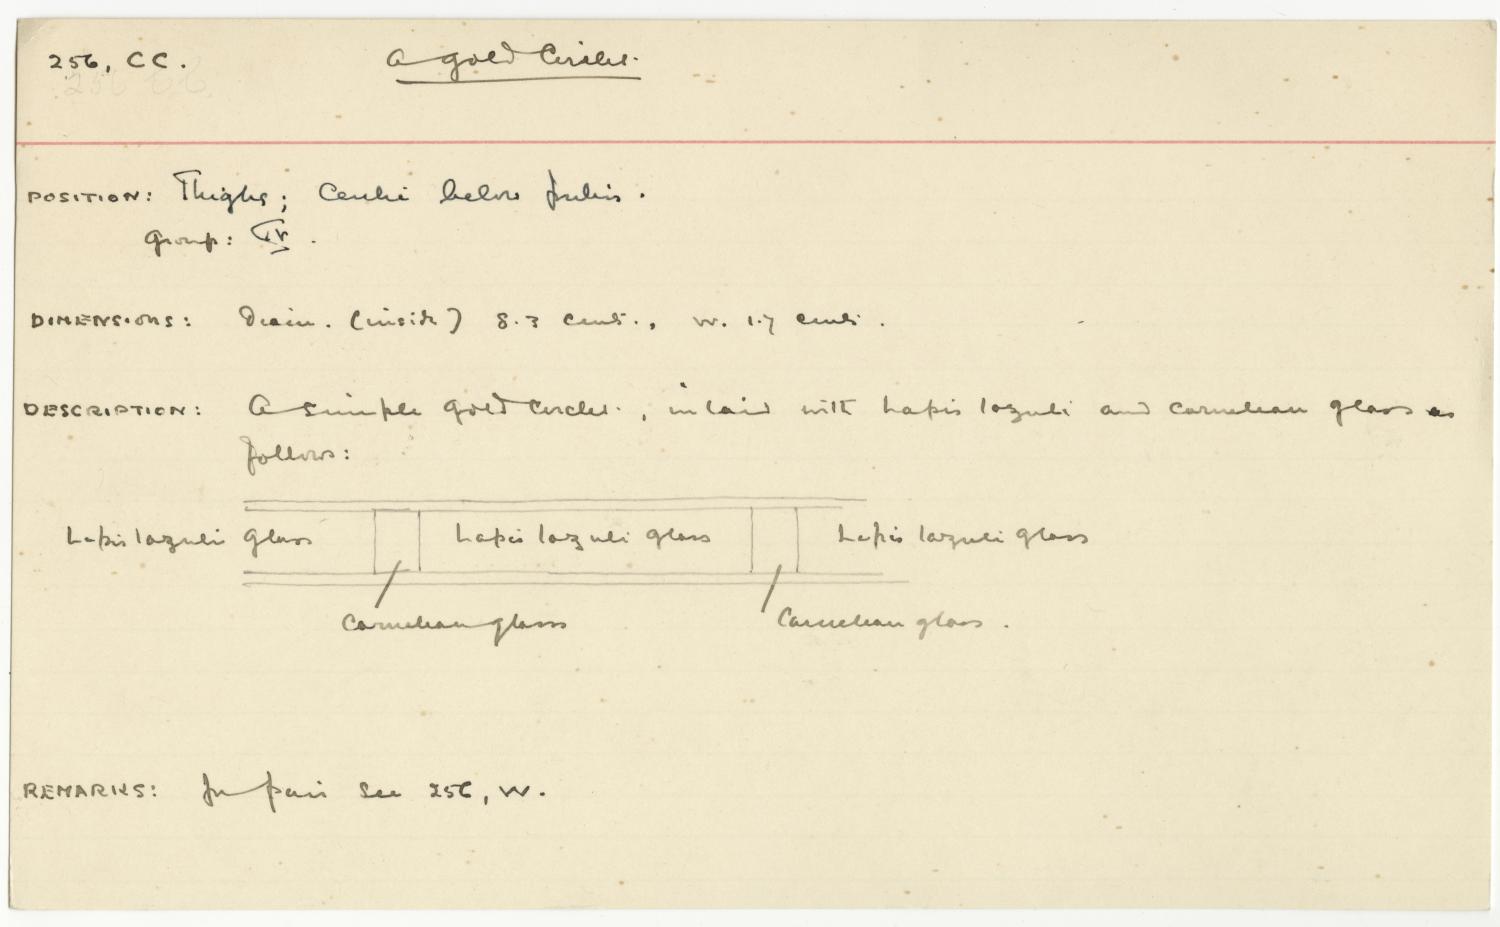 256, CC.
A gold Circlet.
POSITION: Thighs; Centre below pubis.
Group: IV.
DIMENSIONS: Diam. (inside) 8.3 cents., W. 1.7 cents.
DESCRIPTION: A simple gold Circlet., inlaid with Lapis lazuli and carnelian glass as
follows:
Lapis lazuli glass Lapis lazuli glass Lapis lazuli glass
Carnelian glass Carnelian glass.
REMARKS: For pair see 256, W.